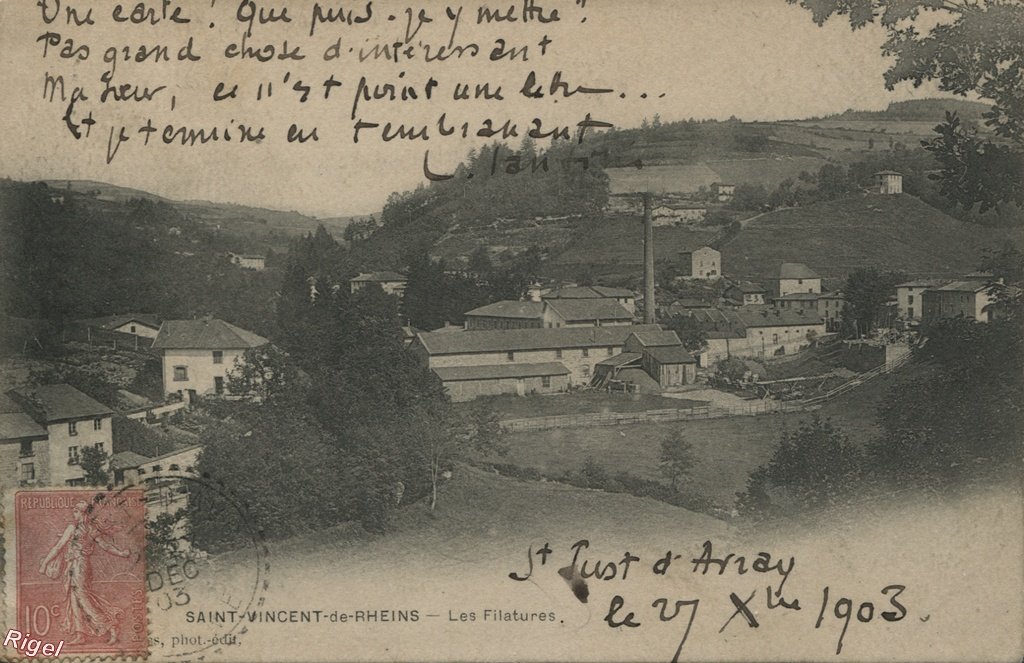 Une carte! Que puis-je y mettre?
Pas grand chose d'intéressant
Ma Sœur, ce n'est point une lettre...
Et je termine en tremblant
REPUBLIQUE FRANÇAISE
10c
POSTES
DEC
03
St Just d'Avray
le 27 Xbre 1903.
SAINT-VINCENT-de-RHEINS — Les Filatures.
phot.-édit.
Rigel